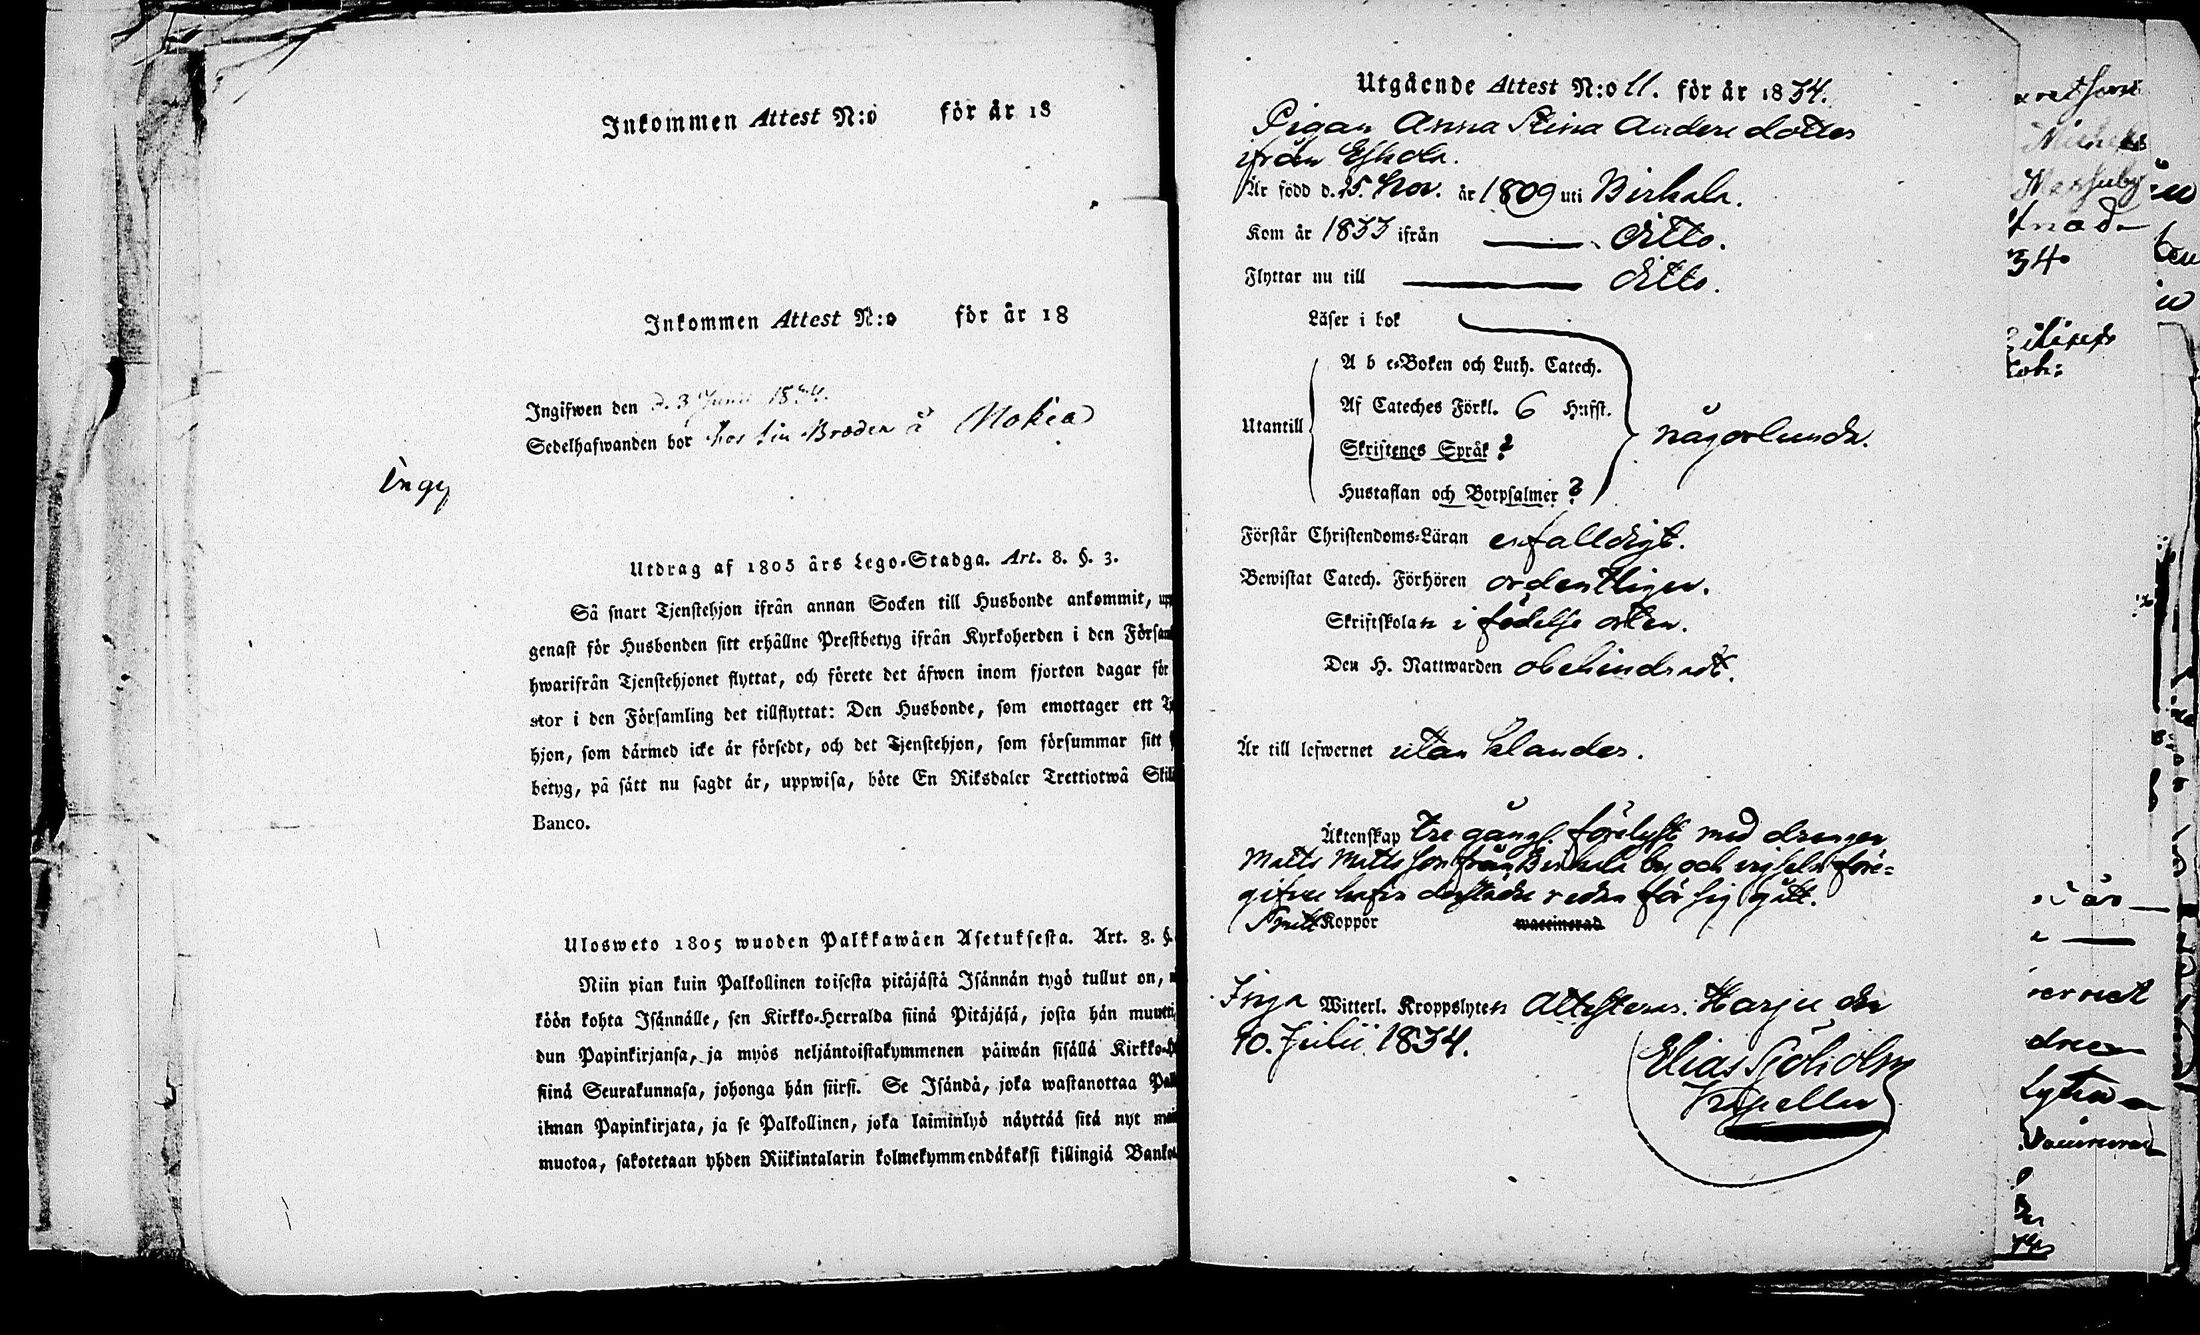 Inkommen Attest N:o för år 18
Inkommen Attest N:o för år 18
Ingifwen den d. 3 Junii 1834.
Sedelhafwanden bor hos sin Broder å Nokia
Ingy
Utdrag af 1805 års Lego-Stadga. Art. 8. §. 3.
Så snart Tjenstehjon ifrån annan Socken till Husbonde ankommit,
genast för Husbonden sitt erhållne Prestbetyg ifrån Kyrkoherden i den
hwarifrån Tjenstehjonet flyttat, och förete det äfwen inom fjorton dagar för
stor i den Församling det tillflyttat: Den Husbonde, som emottager ett
hjon, som därmed icke är försedt, och det Tjenstehjon, som försummar sitt
betyg, på sätt nu sagdt är, uppwisa, böte En Riksdaler Trettiotwå
Banco.
Ulosweto 1805 wuoden Palkkawäen Asetuksesta. Art. 8. §.
Niin pian kuin Palkollinen toisesta pitäjästä Isännän tygö tullut on,
köön kohta Isännälle, sen Kirkko-Herralda siinä Pitäjäsä, josta hän
dun Papinkirjansa, ja myös neljäntoistakymmenen päiwän sisällä
siinä Seurakunnasa, johonga hän siirsi. Se Isändä, joka wastanottaa
ilman Papinkirjata, ja se Palkollinen, joka laiminlyö näyttää sitä nyt
muotoa, sakotetaan yhden Riikintalarin kolmekymmendäkaksi killingiä
Utgående Attest N:o 11. för år 1834.
Pigan Anna Stina Anders dotter
ifrån Eskola.
Är född d. 25. Nov. år 1809 uti Birkala.
Kom år 1833 ifrån — ditto.
Flyttar nu till — ditto.
Läser i bok
A b c-Boken och Luth. Catech.
Af Cateches Förkl. 6 Hufst.
Utantill
någorlunda.
Skriftenes Språk ?
Hustaflan och Botpsalmer ?
Förstår Christendoms-Läran enfalldigt.
Bewistat Catech. Förhören ordentligen.
Skriftskolan i födelse orten.
Den H. Nattwarden obehindradt.
Är till lefwernet utan klander.
Äktenskap tre gångl. förelyst med drengen
Matts Mattsson från Birkala by och vigseln före-
gifven hafva derstädes redan för sig gått.
Koppor waccinerad
Inga Witterl. Kroppslyten Attesteras. Harju den
10. Julii 1834.
Elias
Kapellan